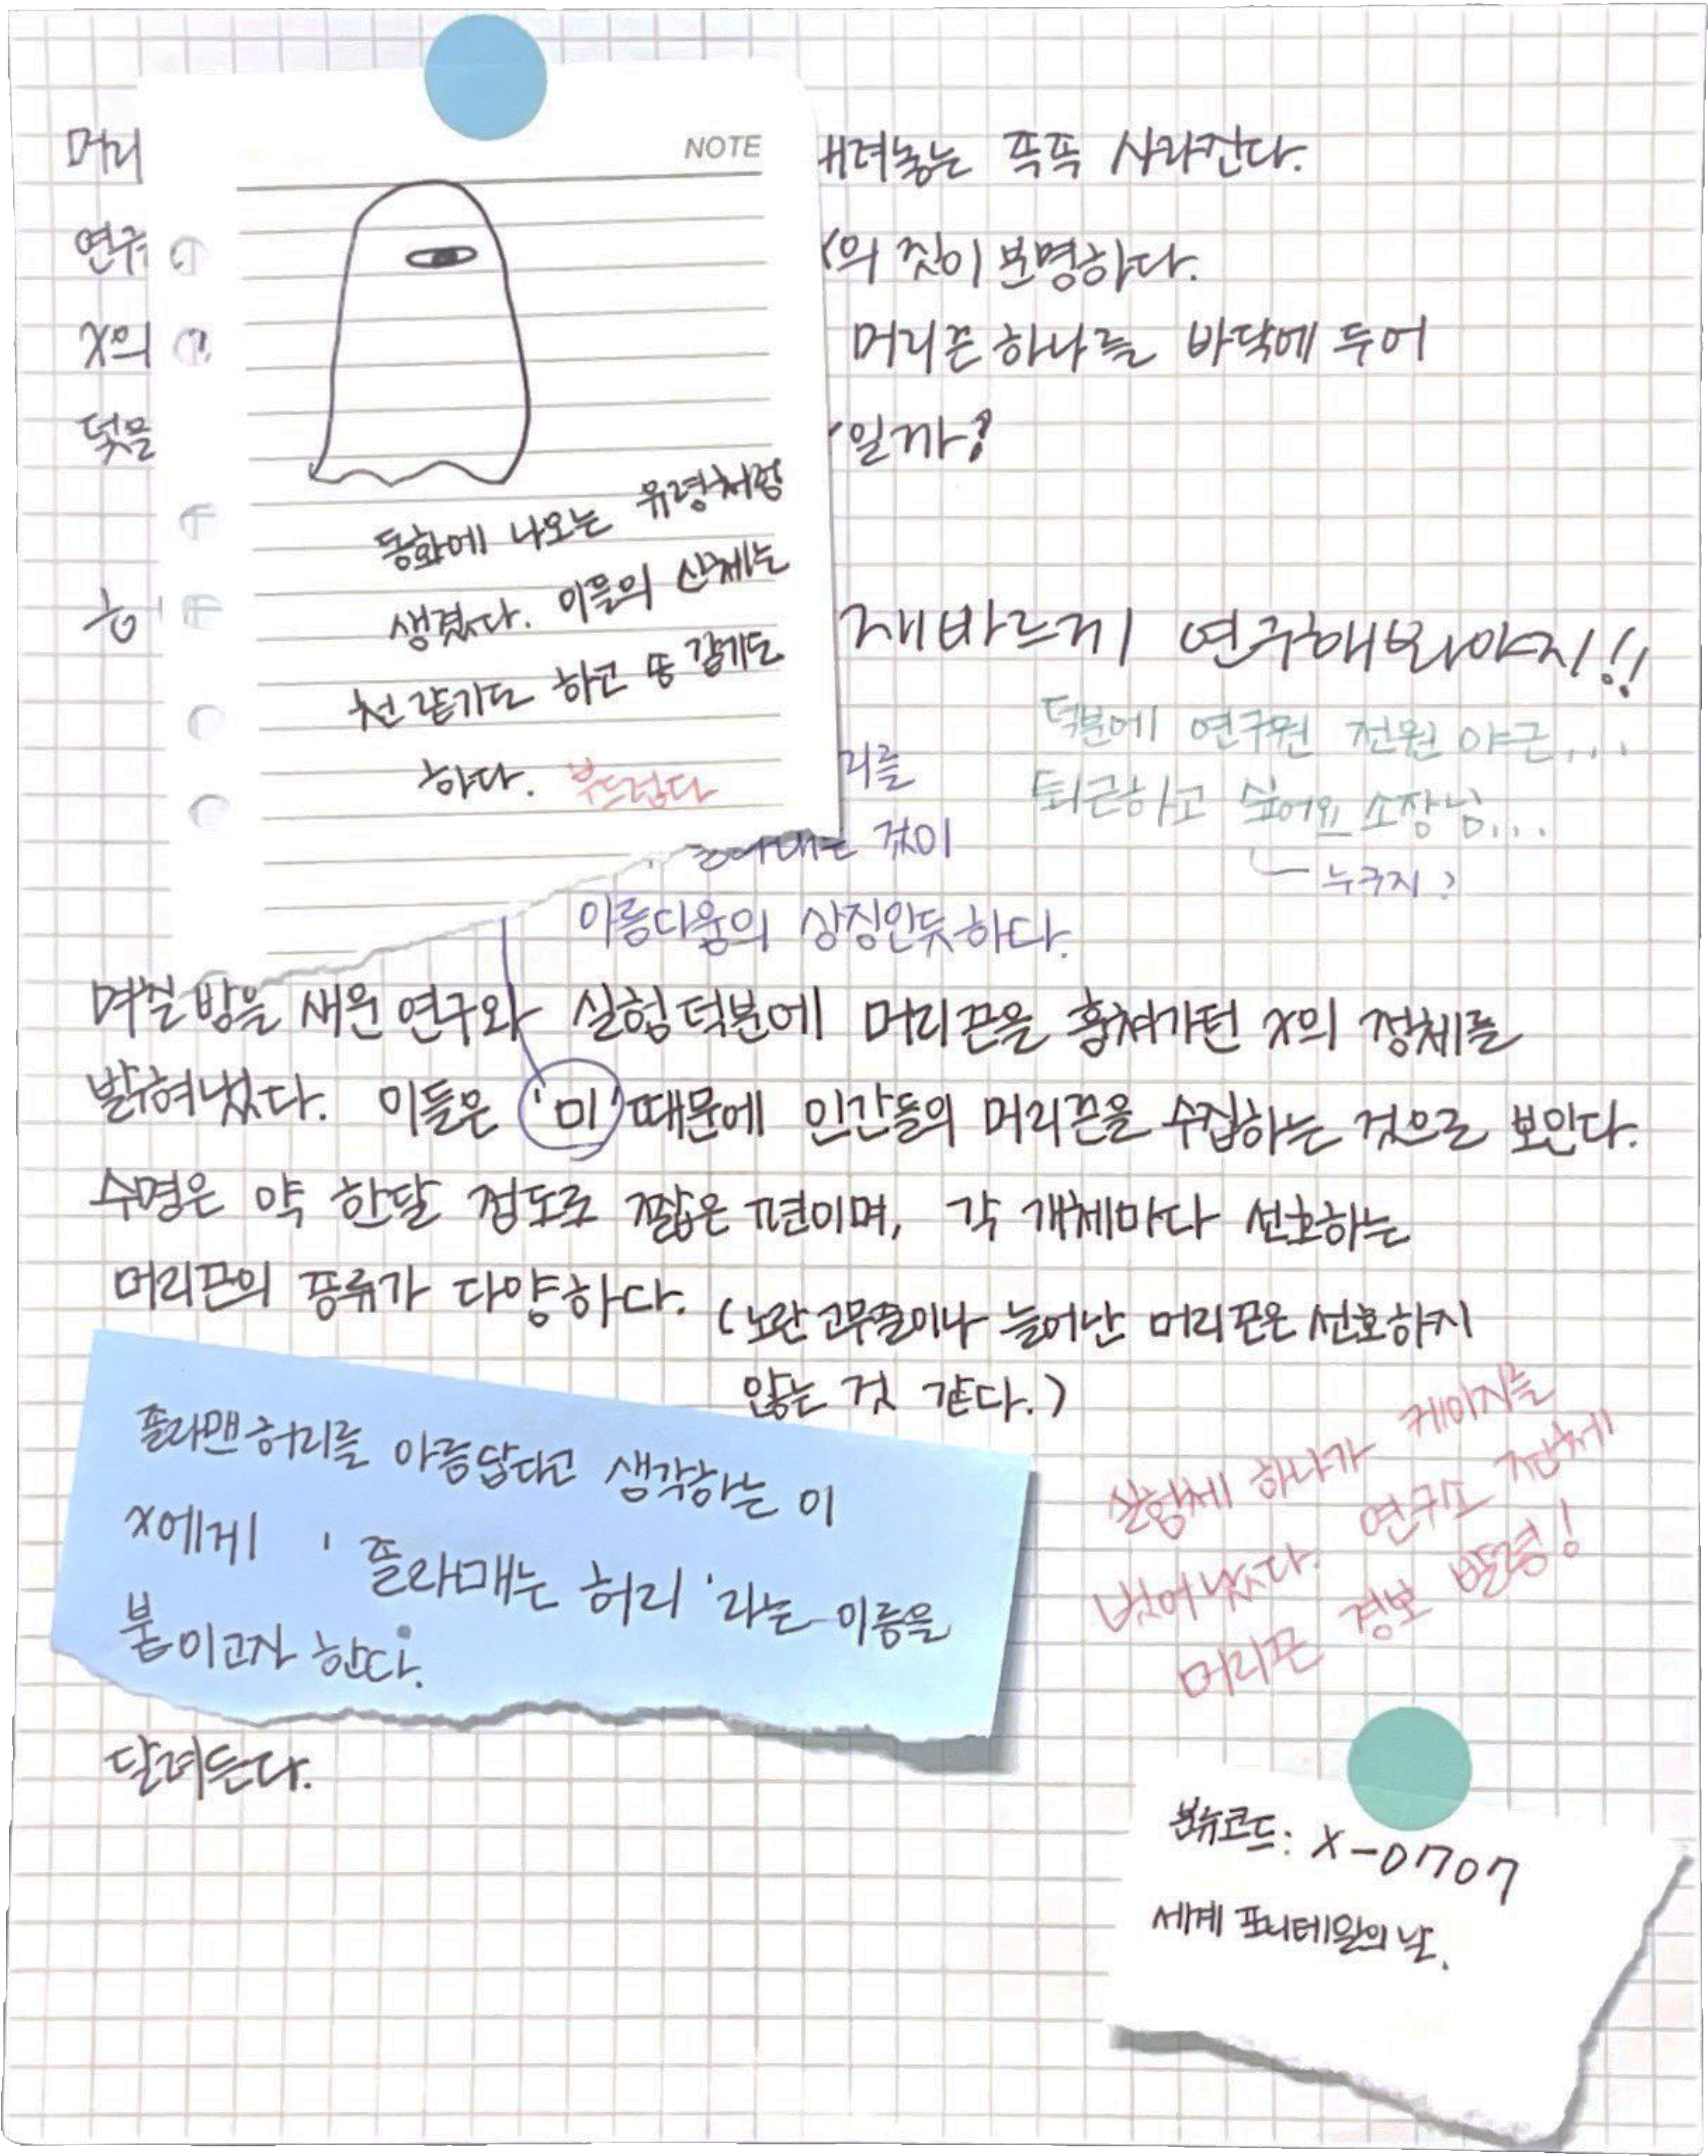 NOTE
머리
내려놓는 족족 사라진다.
연구
X의 짓이 분명하다.
X의
머리끈 하나를 바닥에 두어
덫을
일까?
동화에 나오는 유령처럼
생겼다. 이들의 신체는
천 같기도 하고 솜 같기도
하다. 부드럽다
재바르게 연구해봐야지!!
덕분에 연구원 전원 야근...
퇴근하고 싶어요 소장님...
누구지?
리를
것이
아름다움의 상징인듯하다.
며칠 밤을 새운 연구와 실험 덕분에 머리끈을 훔쳐가던 X의 정체를
밝혀냈다. 이들은 '미' 때문에 인간들의 머리끈을 수집하는 것으로 보인다.
수명은 약 한달 정도로 짧은 편이며, 각 개체마다 선호하는
머리끈의 종류가 다양하다. (노란 고무줄이나 늘어난 머리끈은 선호하지
않는 것 같다.)
졸라맨 허리를 아름답다고 생각하는 이
X에게 '졸라매는 허리'라는 이름을
붙이고자 한다.
실험체 하나가 케이지를
벗어났다. 연구소 전체에
머리끈 경보 발령!
달려든다.
분류코드: X-0707
세계 포니테일의 날.